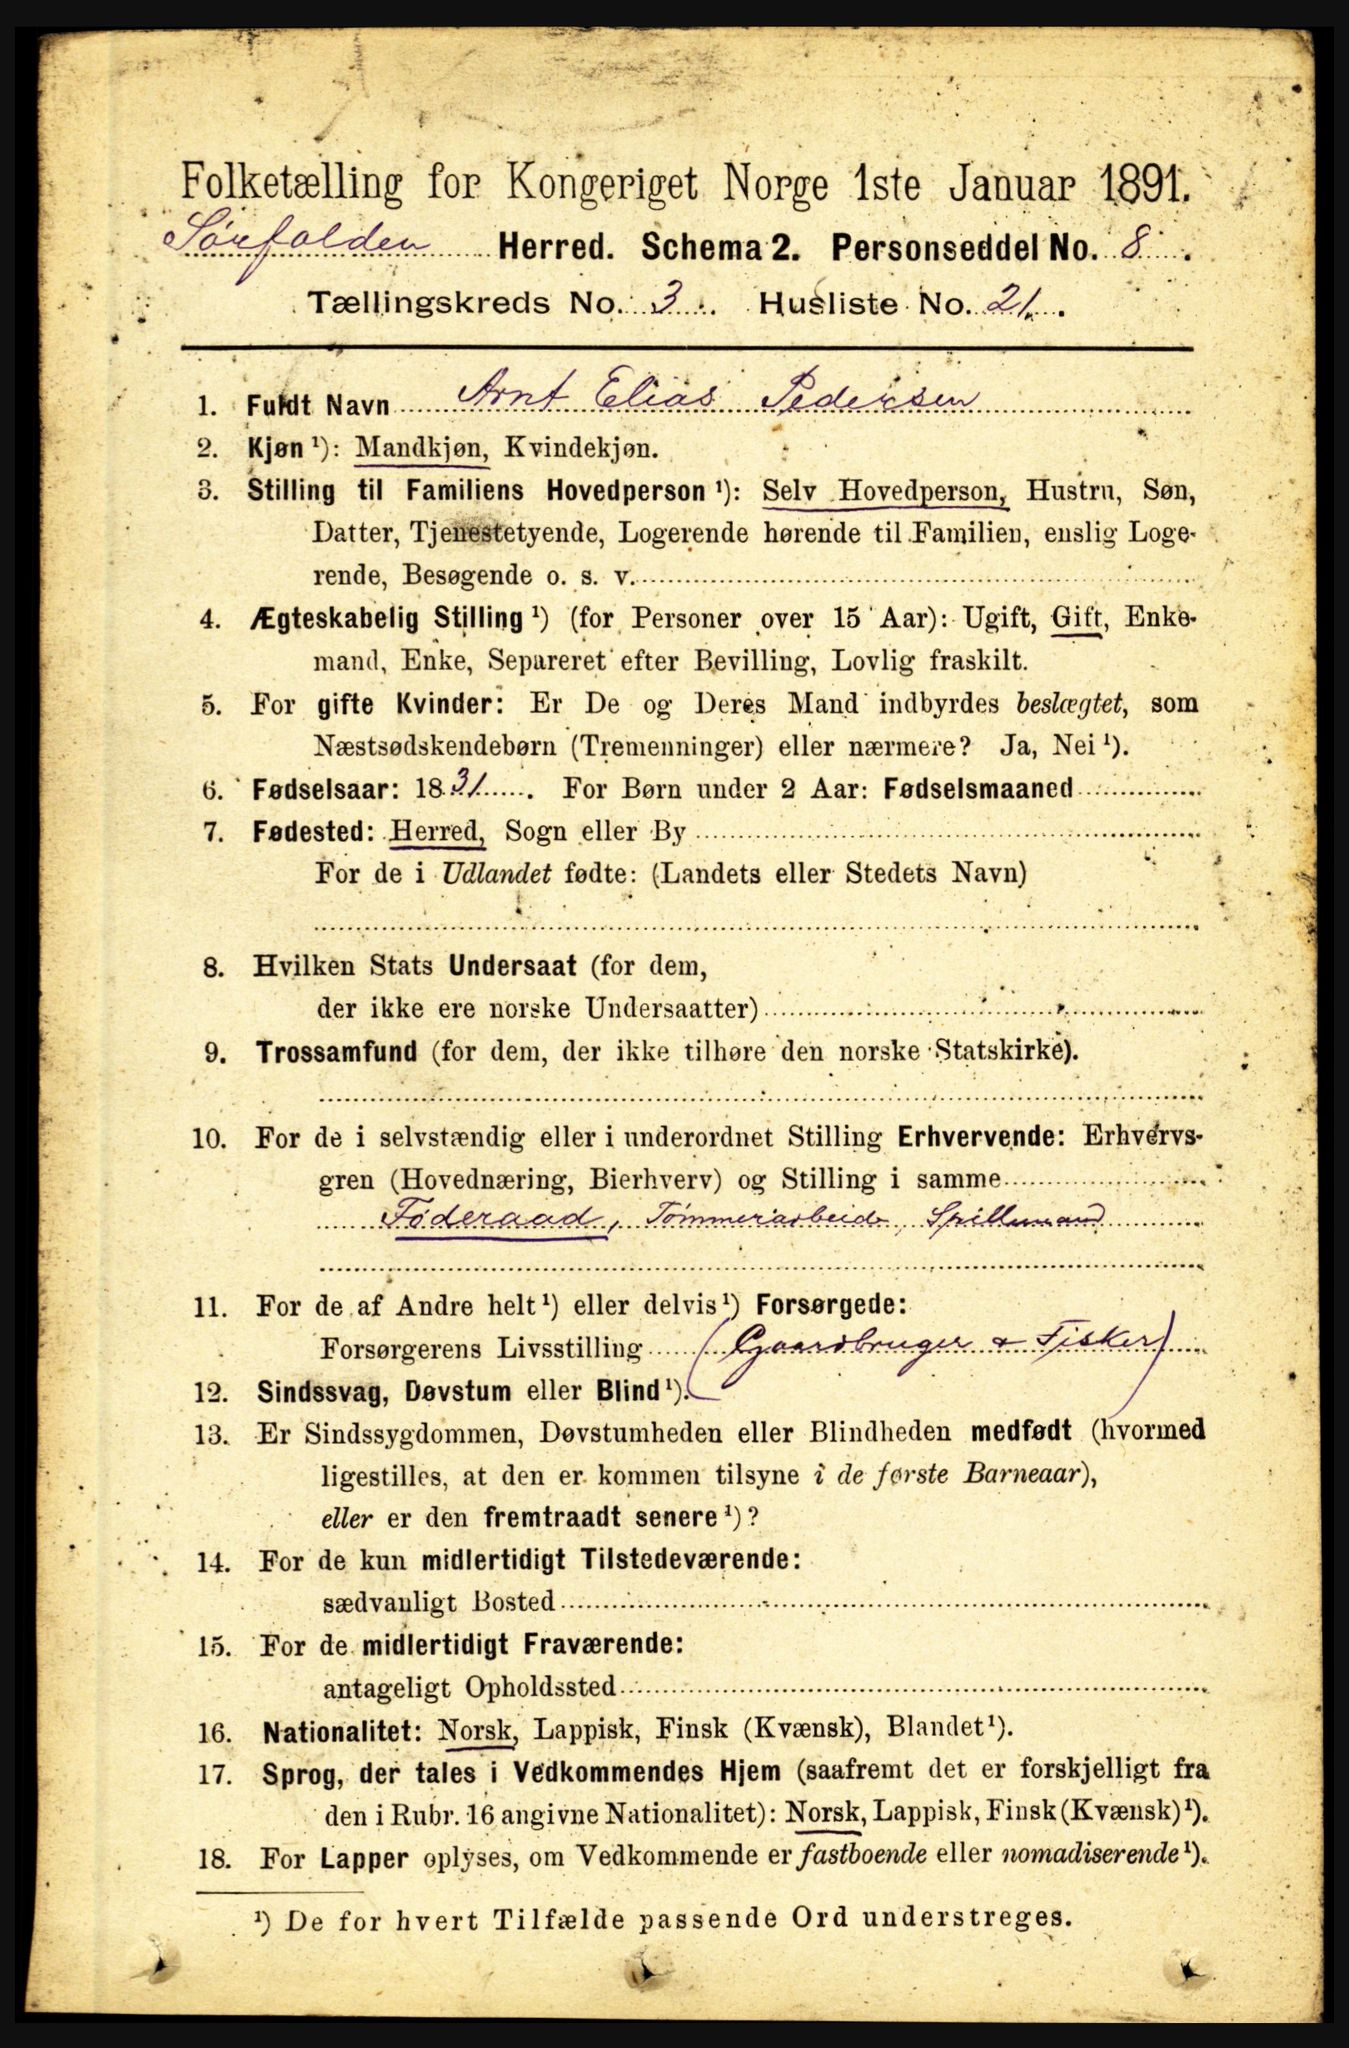 Folketælling for Kongeriget Norge 1ste Januar 1891.
Sørfolden Herred. Schema 2. Personseddel No. 8.
Tællingskreds No. 3. Husliste No. 21.
1. Fuldt Navn Arnt Elias Pedersen
2. Kjøn ¹): Mandkjøn, Kvindekjøn.
3. Stilling til Familiens Hovedperson ¹): Selv Hovedperson, Hustru, Søn,
Datter, Tjenestetyende, Logerende hørende til Familien, enslig Loge-
rende, Besøgende o. s. v.
4. Ægteskabelig Stilling ¹) (for Personer over 15 Aar): Ugift, Gift, Enke-
mand, Enke, Separeret efter Bevilling, Lovlig fraskilt.
5. For gifte Kvinder: Er De og Deres Mand indbyrdes beslægtet, som
Næstsødskendebørn (Tremenninger) eller nærmere? Ja, Nei ¹).
6. Fødselsaar: 1831. For Børn under 2 Aar: Fødselsmaaned
7. Fødested: Herred, Sogn eller By
For de i Udlandet fødte: (Landets eller Stedets Navn)
8. Hvilken Stats Undersaat (for dem,
der ikke ere norske Undersaatter)
9. Trossamfund (for dem, der ikke tilhøre den norske Statskirke).
10. For de i selvstændig eller i underordnet Stilling Erhvervende: Erhvervs-
gren (Hovednæring, Bierhverv) og Stilling i samme
Føderaad, Tømmerarbeide, Spillemand
11. For de af Andre helt ¹) eller delvis ¹) Forsørgede:
Forsørgerens Livsstilling (Gaardbruger & Fisker)
12. Sindssvag, Døvstum eller Blind ¹).
13. Er Sindssygdommen, Døvstumheden eller Blindheden medfødt (hvormed
ligestilles, at den er kommen tilsyne i de første Barneaar),
eller er den fremtraadt senere ¹)?
14. For de kun midlertidigt Tilstedeværende:
sædvanligt Bosted
15. For de midlertidigt Fraværende:
antageligt Opholdssted
16. Nationalitet: Norsk, Lappisk, Finsk (Kvænsk), Blandet ¹).
17. Sprog, der tales i Vedkommendes Hjem (saafremt det er forskjelligt fra
den i Rubr. 16 angivne Nationalitet): Norsk, Lappisk, Finsk (Kvænsk) ¹).
18. For Lapper oplyses, om Vedkommende er fastboende eller nomadiserende ¹).
¹) De for hvert Tilfælde passende Ord understreges.